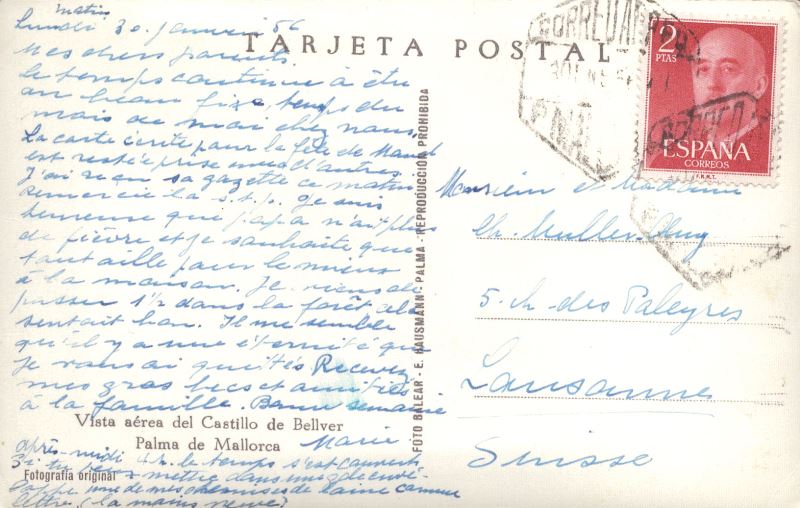 matin
Lundi 30. janvier 56
Mes chers parents
le temps continue à être
au beau fixe, temps du
mois de mai chez nous.
La carte écrite pour la fête de Maud
est restée prise avec d'autres
J'ai reçu sa gazette ce matin
remercie la s.t.p. Je suis
heureuse que papa n'ait plus
de fièvre et je souhaite que
tout aille pour le mieux
à la maison. Je viens de
passer 1½ dans la forêt, cela
sentait bon. Il me semble
qu'il y a une éternité que
je vous ai quittés Recevez
mes gros becs et amitiés
à la famille. Bonne semaine
Marie
après-midi 4 h. le temps s'est couvert
Si tu mettre dans une
une de mes chemises de laine comme
lettre, (la moins neuve)
Vista aérea del Castillo de Bellver
Palma de Mallorca
Fotografía original
FOTO BALEAR - E. HAUSMANN - PALMA - REPRODUCCION PROHIBIDA
TARJETA POSTAL
CORREO AEREO
2
PTAS
ESPAÑA
CORREOS
F.N.M.T.
Monsieur et Madame
Ch. Muller-
5. ch. des Paleyres
Lausanne
Suisse